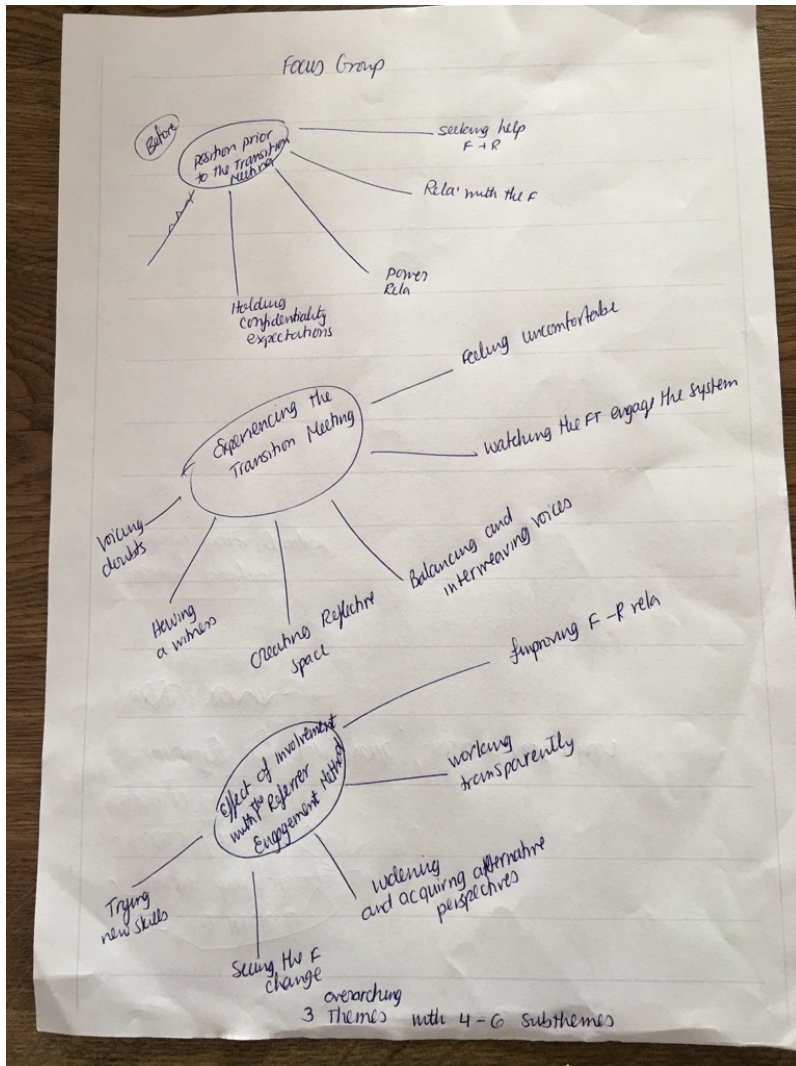 Focus Group
Before
position prior
to the Transition
Meeting
seeking help
F + R
Rela' with the F
power
Rela
Holding
confidentiality
expectations
Experiencing the
Transition Meeting
Feeling uncomfortable
watching the FT engage the system
Balancing and
interweaving voices
Creating Reflective
space
Having
a witness
Voicing
doubts
Effect of involvement
with the Referrer
Engagement Method
Improving F - R rela
working
transparently
widening
and acquiring alternative
perspectives
Seeing the F
change
Trying
new skills
overarching
3 Themes with 4 - 6 subthemes